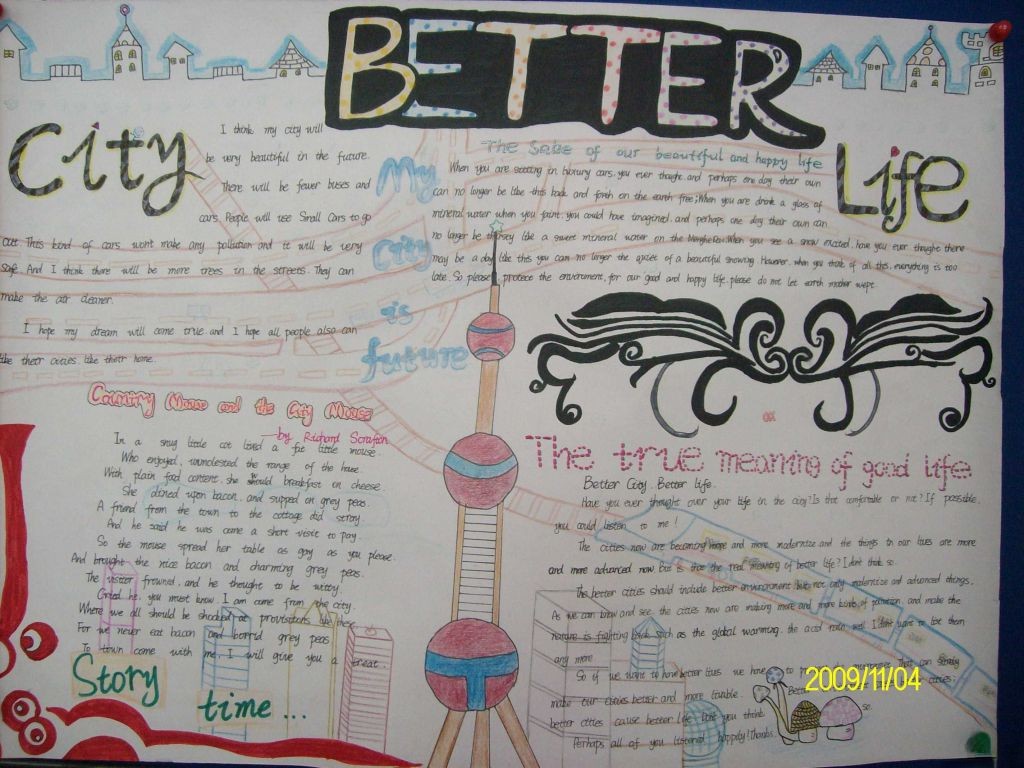 BETTER
City
Life
I think my city will
be very beautiful in the future.
There will be fewer buses and
cars. People will use Small Cars to go
out. This kind of cars won't make any pollution and it will be very
safe. And I think there will be more trees in the streets. They can
make the air cleaner.
I hope my dream will come true. and I hope all people also can
like their cities. like their home.
My
City
is
future
The Sake of our beautiful and happy life
When you are sitting in luxury cars. you ever thought. and perhaps one day their own
can no longer be like this back and forth on the earth free; When you are drink a glass of
mineral water when you faint. you could have imagined. and perhaps one day their own can
no longer be thirsty like a sweet mineral water on the When you see a snow excited. have you ever thought there
may be a day like this you can no longer the quiet of a beautiful snowing. However. when you think of all this. everything is too
late. So please protect the environment. for our good and happy life. please do not let earth mother wept.
Country Mouse and the City Mouse
—by Richard Scrafton
In a snug little cot lived a fat little mouse.
Who enjoyed, unmolested the range of the house.
With plain food content. she would breakfast on cheese.
She dined upon bacon. and supped on grey peas.
A friend from the town to the cottage did stray.
And he said he was come a short visit to pay.
So the mouse spread her table as gay as you please.
And brought the nice bacon and charming grey peas.
The visitor frowned. and he thought to be witty.
Cried he. you must know I am come from the city.
Where we all should be shocked at provisions like these.
For we never eat bacon and horrid grey peas
To town come with me. I will give you a treat.
Story
time...
The true meaning of good life
Better City. Better life.
Have you ever thought over your life in the city? Is that comfortable or not? If possible,
you could listen to me!
The cities now are becoming more and more modernize and the things in our lives are more
and more advanced now. but is that the real meaning of better life? I don't think so.
The better cities should include better environment but not only modernize and advanced things.
As we can know and see the cities now are making more and more kinds of pollution and make the
nature is fighting back such as the global warming. the acid rain and I don't want to list them
any more.
So if we want to have better lives we have to That can
make our cities better and more livable. Better cities:
better cities cause better life. don't you think so.
Perhaps all of you listened happily! Thanks.
2009/11/04